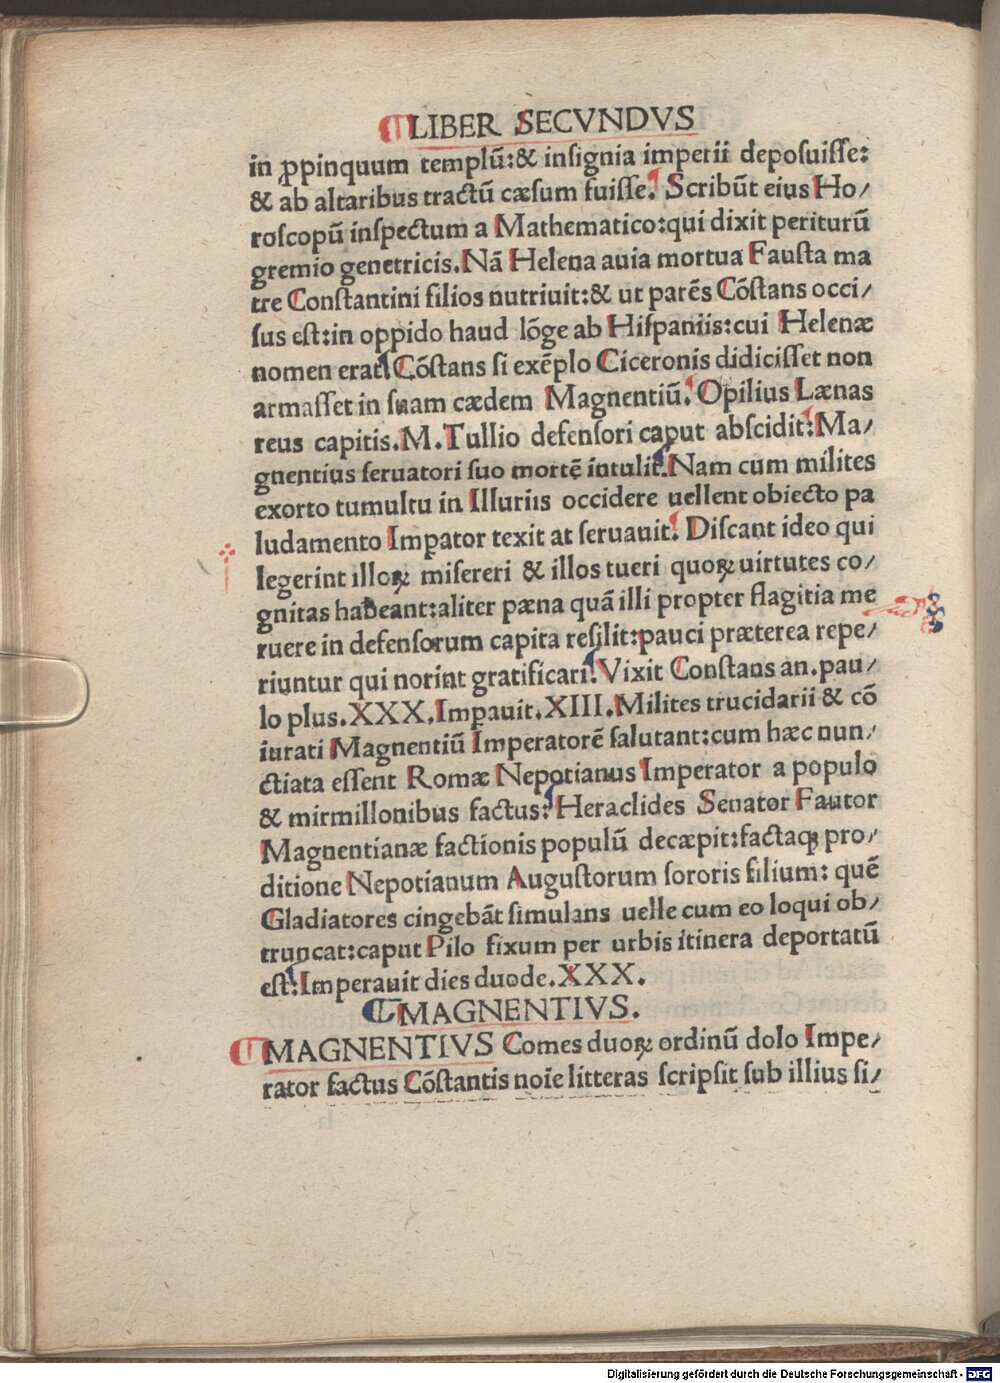 LIBER SECVNDVS
in ꝓpinquum templū:& insignia imperii deposuisse:
& ab altaribus tractū cæsum fuisse. Scribūt eius Ho/
roscopū inspectum a Mathematico:qui dixit periturū
gremio genetricis.Nā Helena auia mortua Fausta ma
tre Constantini filios nutriuit:& ut parēs Cōstans occi/
sus est:in oppido haud lōge ab Hispaniis:cui Helenæ
nomen erat. Cōstans si exēplo Ciceronis didicisset non
armasset in suam cædem Magnentiū. Opilius Lænas
reus capitis.M.Tullio defensori caput abscidit:Ma/
gnentius seruatori suo mortē intulit.Nam cum milites
exorto tumultu in Illuriis occidere uellent obiecto pa
ludamento Impator texit at seruauit. Discant ideo qui
legerint illoꝝ misereri & illos tueri quoꝝ uirtutes co/
gnitas habeant:aliter pæna quā illi propter flagitia me
ruere in defensorum capita resilit:pauci præterea repe/
riuntur qui norint gratificari. Vixit Constans an.pau/
lo plus.XXX.Impauit.XIII.Milites trucidarii & cō
iurati Magnentiū Imperatorē salutant:cum hæc nun/
ctiata essent Romæ Nepotianus Imperator a populo
& mirmillonibus factus: Heraclides Senator Fautor
Magnentianæ factionis populū decæpit:factaq; pro/
ditione Nepotianum Augustorum sororis filium: quē
Gladiatores cingebāt simulans uelle cum eo loqui ob/
truncat:caput Pilo fixum per urbis itinera deportatū
est: Imperauit dies duode.XXX.
MAGNENTIVS.
MAGNENTIVS Comes duoꝝ ordinū dolo Impe/
rator factus Cōstantis noīe litteras scripsit sub illius si/
Digitalisierung gefördert durch die Deutsche Forschungsgemeinschaft - DFG